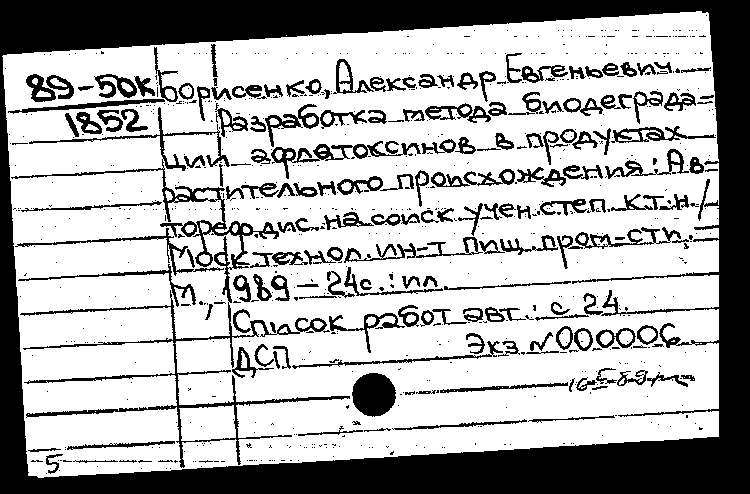 89-50к Борисенко, Александр Евгеньевич.
1852 Разработка метода биодеграда=
ции афлатоксинов в продуктах
растительного происхождения: Ав=
тореф. дис. на соиск учен. степ. к.т.н /
Моск. технол. ин-т пищ. пром-сти. -
М., 1989 - 24с.: ил.
Список работ авт.: с 24.
ДСП Экз N000006.
5